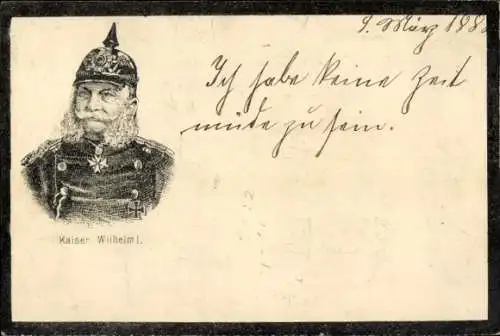 9. März 188
Ich habe keine Zeit
müde zu sein.
Kaiser Wilhelm I.